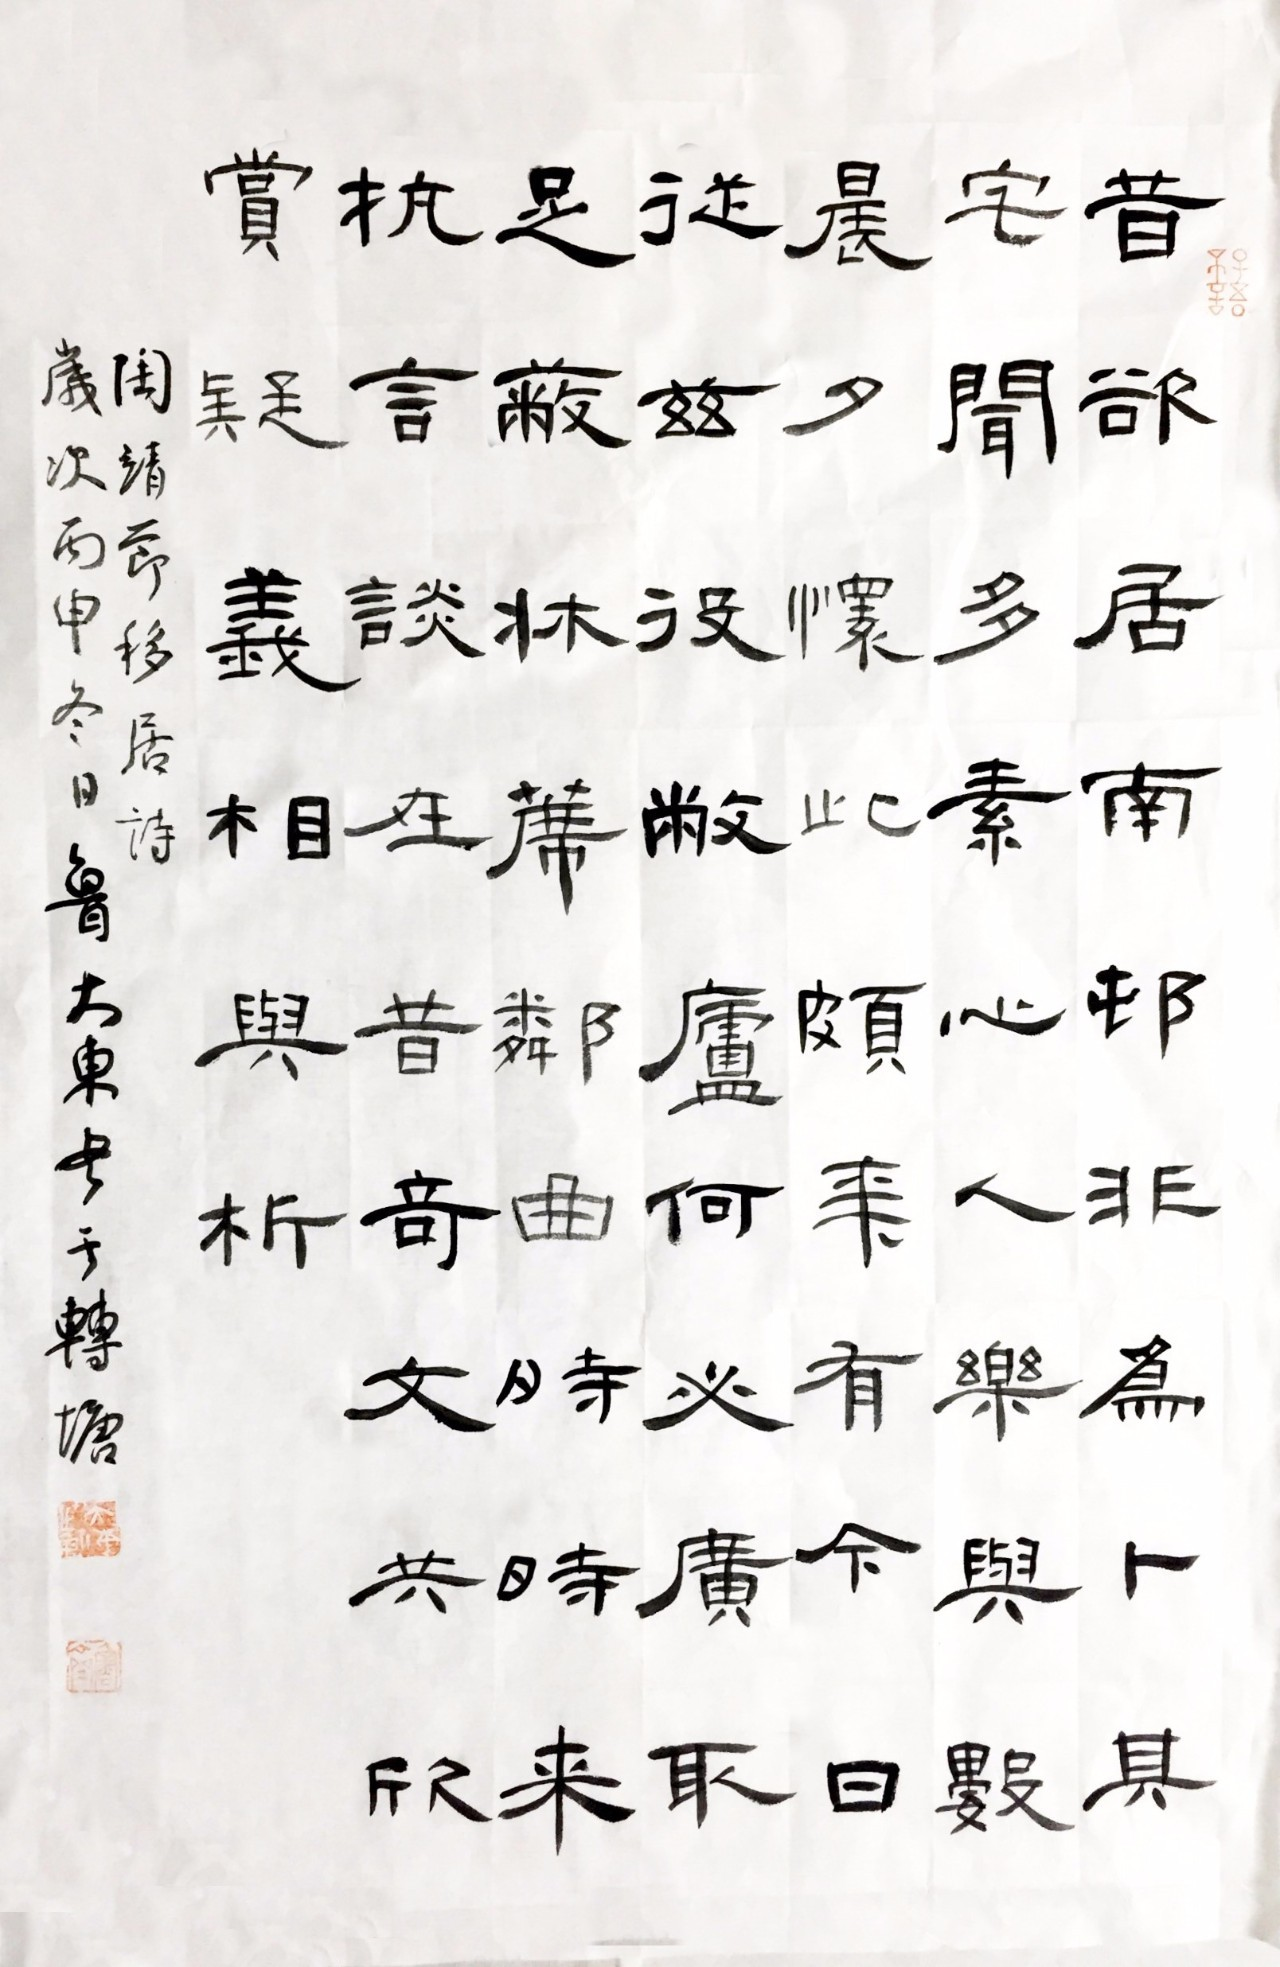 昔欲居南邨非為卜其
宅聞多素心人樂與數
晨夕懷此頗秊有今日
從茲役敝廬何必廣取
足蔽牀蓆鄰曲時時来
抗言談在昔奇文共欣
賞疑義相與析
陶靖節移居詩
歲次丙申冬日魯大東書于轉塘